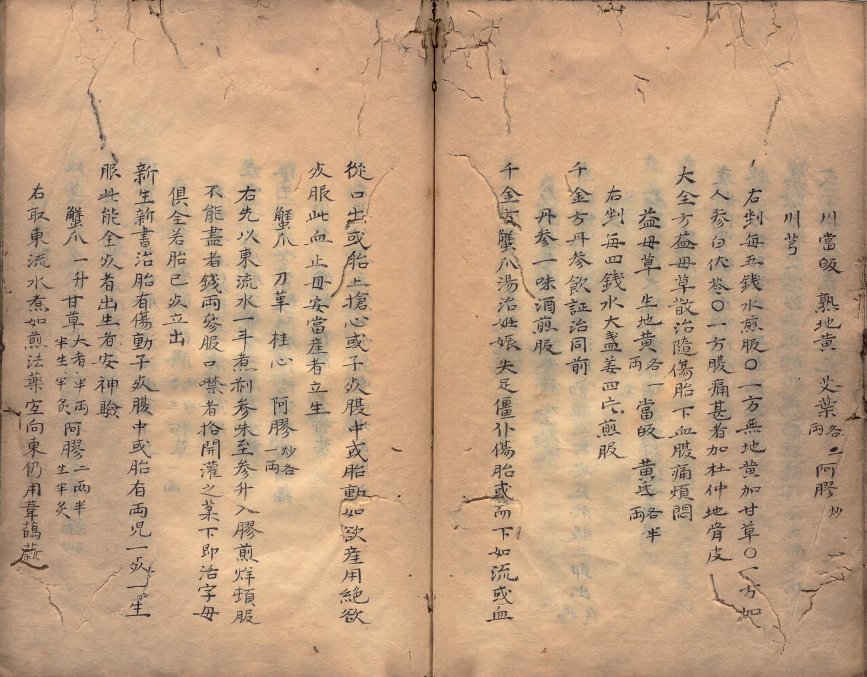 川當皈 熟地黄 艾葉各二兩 阿膠炒
川芎
右剉每五錢水煎服〇一方無地黄加甘草〇一方如
人參白伏苓〇一方腹痛甚者加杜仲地骨皮
大全方益母草散治隨傷胎下血腹痛煩悶
益母草 生地黄各一兩 當皈 黄芪各半兩
右剉每四錢水大盞姜四片煎服
千金方丹參飲証治同前
丹參一味酒煎服
千金方蟹爪湯治妊娠失足僵仆傷胎或而下如流或血
從口出或胎上搶心或子死腹中或胎動如欲産用絶欲
死服此血止母安當産者立生
蟹爪 刀草 桂心 阿膠炒各一兩
右先以東流水一斗煮剤參味至參升入膠煎烊頓服
不能盡者錢兩參服口噤者挌開灌之葉下即活字母
俱全若胎已死立出
新生新書治胎有傷動子死腹中或胎有兩児一死一生
服此能全死者出生者安神驗
蟹爪一升甘草大者半兩半生半炙阿膠二兩半生半炙
右取東流水煮如煎法藥宜向東仍用葦